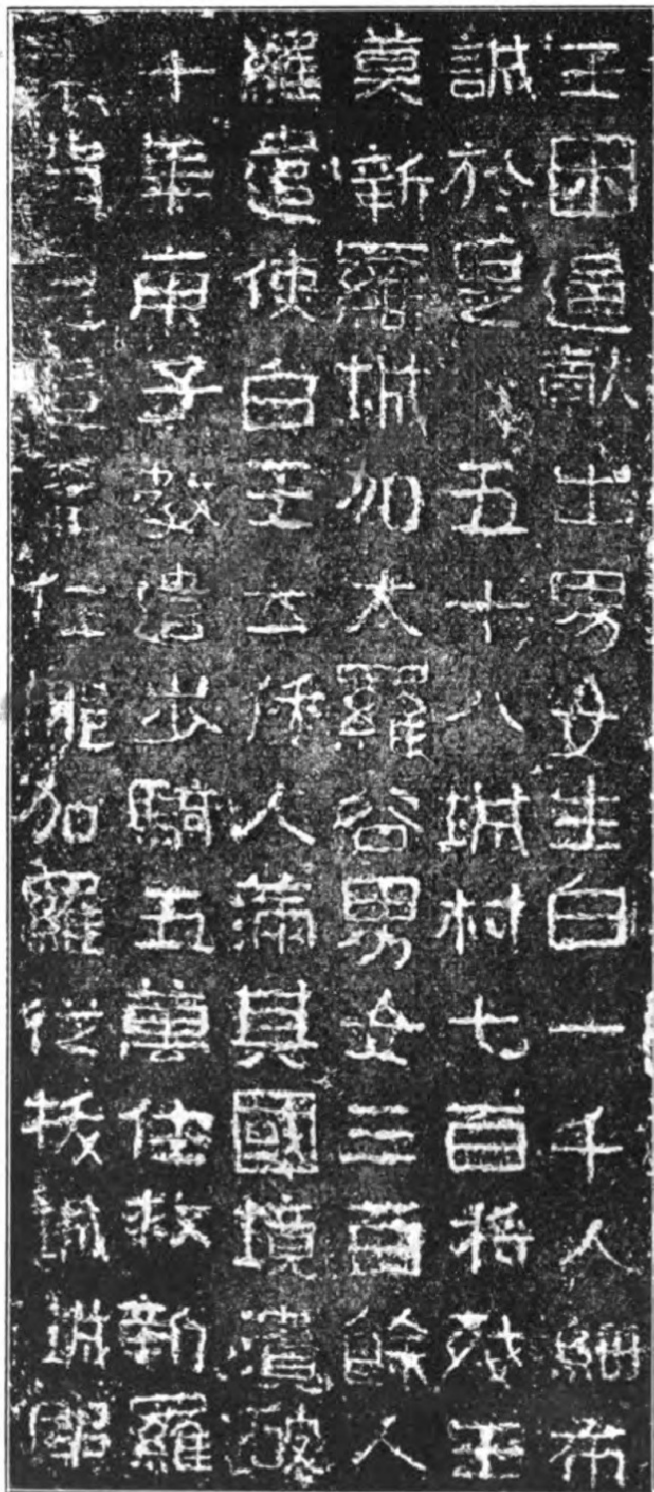 王困逼獻出男女生白一千人細布
誠於是五十八城村七百將殘王
莫新羅城加太羅谷男女三百餘人
羅遣使白王云倭人滿其國境潰破
十年庚子教遣步騎五萬往救新羅
背急追至任那加羅從拔城城即